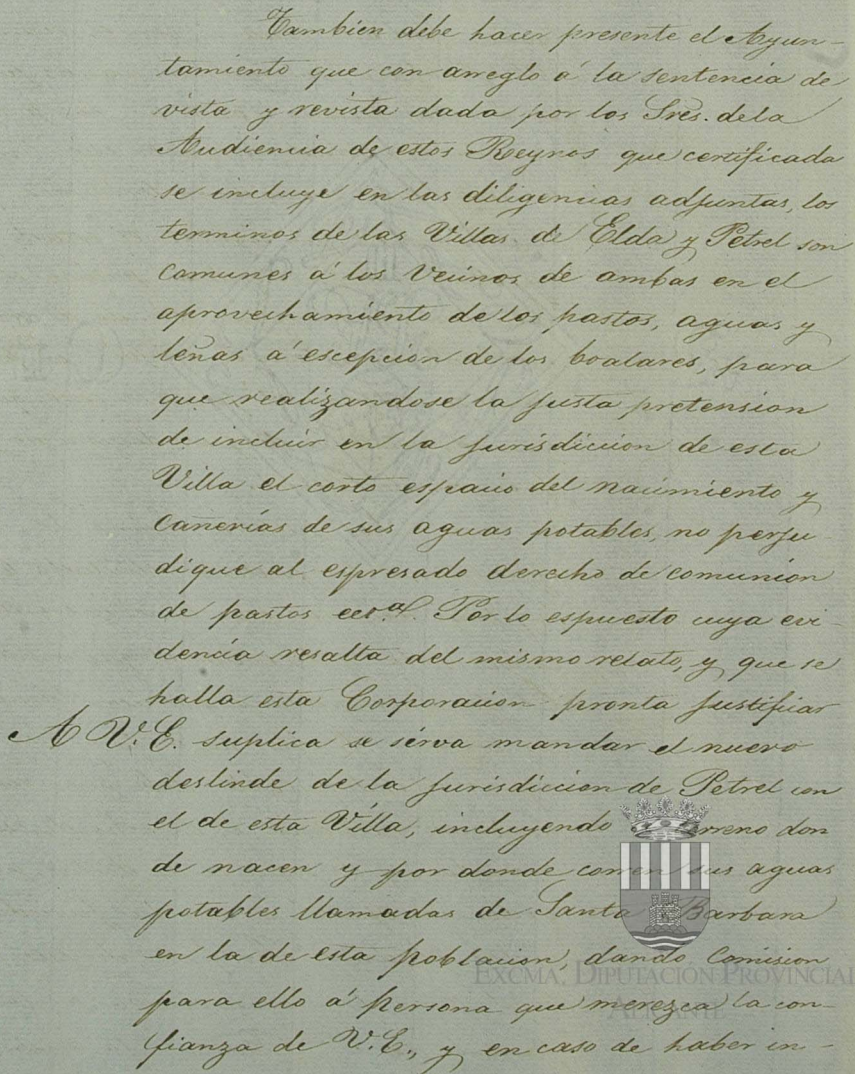 Tambien debe hacer presente el Ayun-
tamiento que con arreglo á la sentencia de
vista y revista dada por los Sres. dela
Audiencia de estos Reynos que certificada
se incluye en las diligencias adjuntas, los
terminos de las Villas de Elda y Petrel son
comunes á los Vecinos de ambas en el
aprovechamiento de los pastos, aguas y
leñas á escepcion de los boalares, para
que realizandose la justa pretension
de incluir en la jurisdiccion de esta
Villa el corto espacio del nacimiento y
cañerias de sus aguas potables, no perju-
dique al espresado derecho de comunion
de pastos Por lo espuesto cuya evi-
dencia resalta del mismo relato, y que se
halla esta Corporacion pronta justificar
A V.E. suplica se sirva mandar el nuevo
deslinde de la jurisdiccion de Petrel con
el de esta Villa, incluyendo don
de nacen y por donde corren sus aguas
potables llamadas de Santa Barbara
en la de esta poblacion, dando Comision
para ello á persona que merezca la con-
fianza de V.E., y en caso de haber in-
EXCMA. DIPUTACIÓN PROVINCIAL
ALICANTE